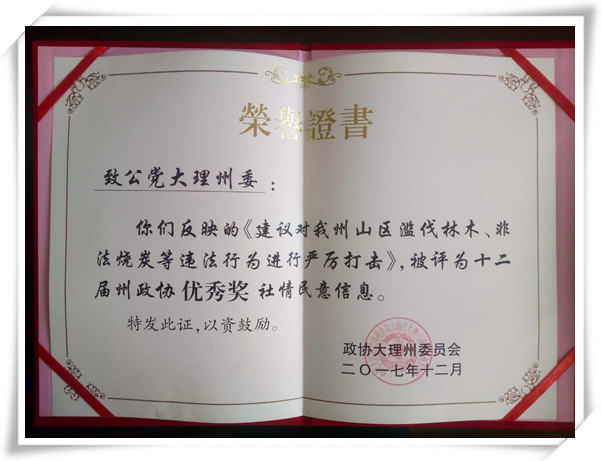 榮譽證書
致公党大理州委：
你们反映的《建议对我州山区滥伐林木、非
法烧炭等违法行为进行严厉打击》，被评为十二
届州政协 优秀奖 社情民意信息。
特发此证，以资鼓励。
政协大理州委员会
二〇一七年十二月